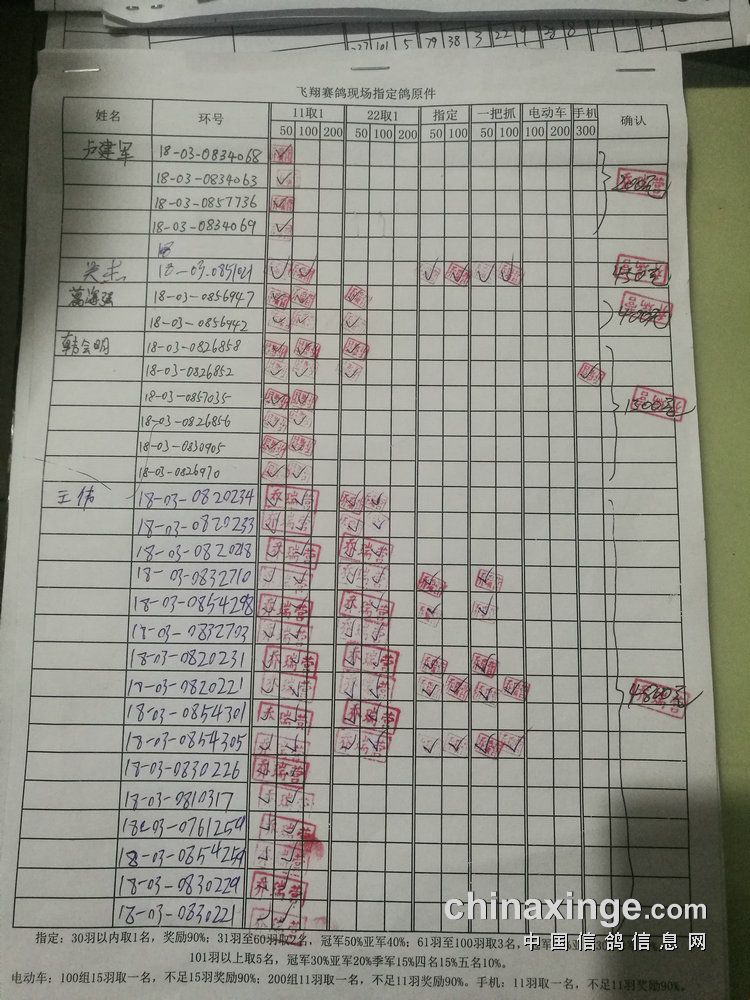 飞翔赛鸽现场指定鸽原件
姓名 环号 11取1 22取1 指定 一把抓 电动车 手机 确认
50 100 200 50 100 200 50 100 50 100 100 200 300
卢建军 18-03-0834068 ✓ 200元
18-03-0834063 ✓
18-03-0857736 ✓
18-03-0834069 ✓
18-03-0851021 ✓ ✓ ✓ ✓ ✓ ✓ 450元
18-03-0856947 ✓ ✓ ✓ 400元
18-03-0856942 ✓ ✓ ✓
韩会明 18-03-0826858 ✓ ✓ ✓
18-03-0826852 ✓ ✓ ✓ ✓
18-03-0857035 ✓ ✓ 1500元
18-03-0826856 ✓ ✓
18-03-0830905 ✓ ✓
18-03-0826970 ✓ ✓
王伟 18-03-0820234 ✓ ✓ ✓ ✓
18-03-0820233 ✓ ✓ ✓ ✓
18-03-0820218 ✓ ✓ ✓ ✓
18-03-0832710 ✓ ✓ ✓ ✓ ✓ ✓
18-03-0854298 ✓ ✓ ✓ ✓ ✓ ✓
18-03-0832703 ✓ ✓ ✓ ✓
18-03-0820231 ✓ ✓ ✓ ✓ ✓ ✓
18-03-0820221 ✓ ✓ ✓ ✓ ✓ ✓ ✓ ✓ 4800元
18-03-0854301 ✓ ✓ ✓ ✓
18-03-0854305 ✓ ✓ ✓ ✓ ✓ ✓ ✓ ✓
18-03-0830226 ✓ ✓
18-03-0810317 ✓ ✓
18-03-0761254 ✓ ✓
18-03-0854259 ✓ ✓
18-03-0830229 ✓ ✓
18-03-0830221 ✓ ✓
乔瑞营
chinaxinge.com
中国信鸽信息网
指定：30羽以内取1名，奖励90%；31羽至60羽取2名，冠军50%亚军40%；61羽至100羽取3名，
101羽以上取5名，冠军30%亚军20%季军15%四名15%五名10%。
电动车：100组15羽取一名，不足15羽奖励90%；200组11羽取一名，不足11羽奖励90%。手机：11羽取一名，不足11羽奖励90%。